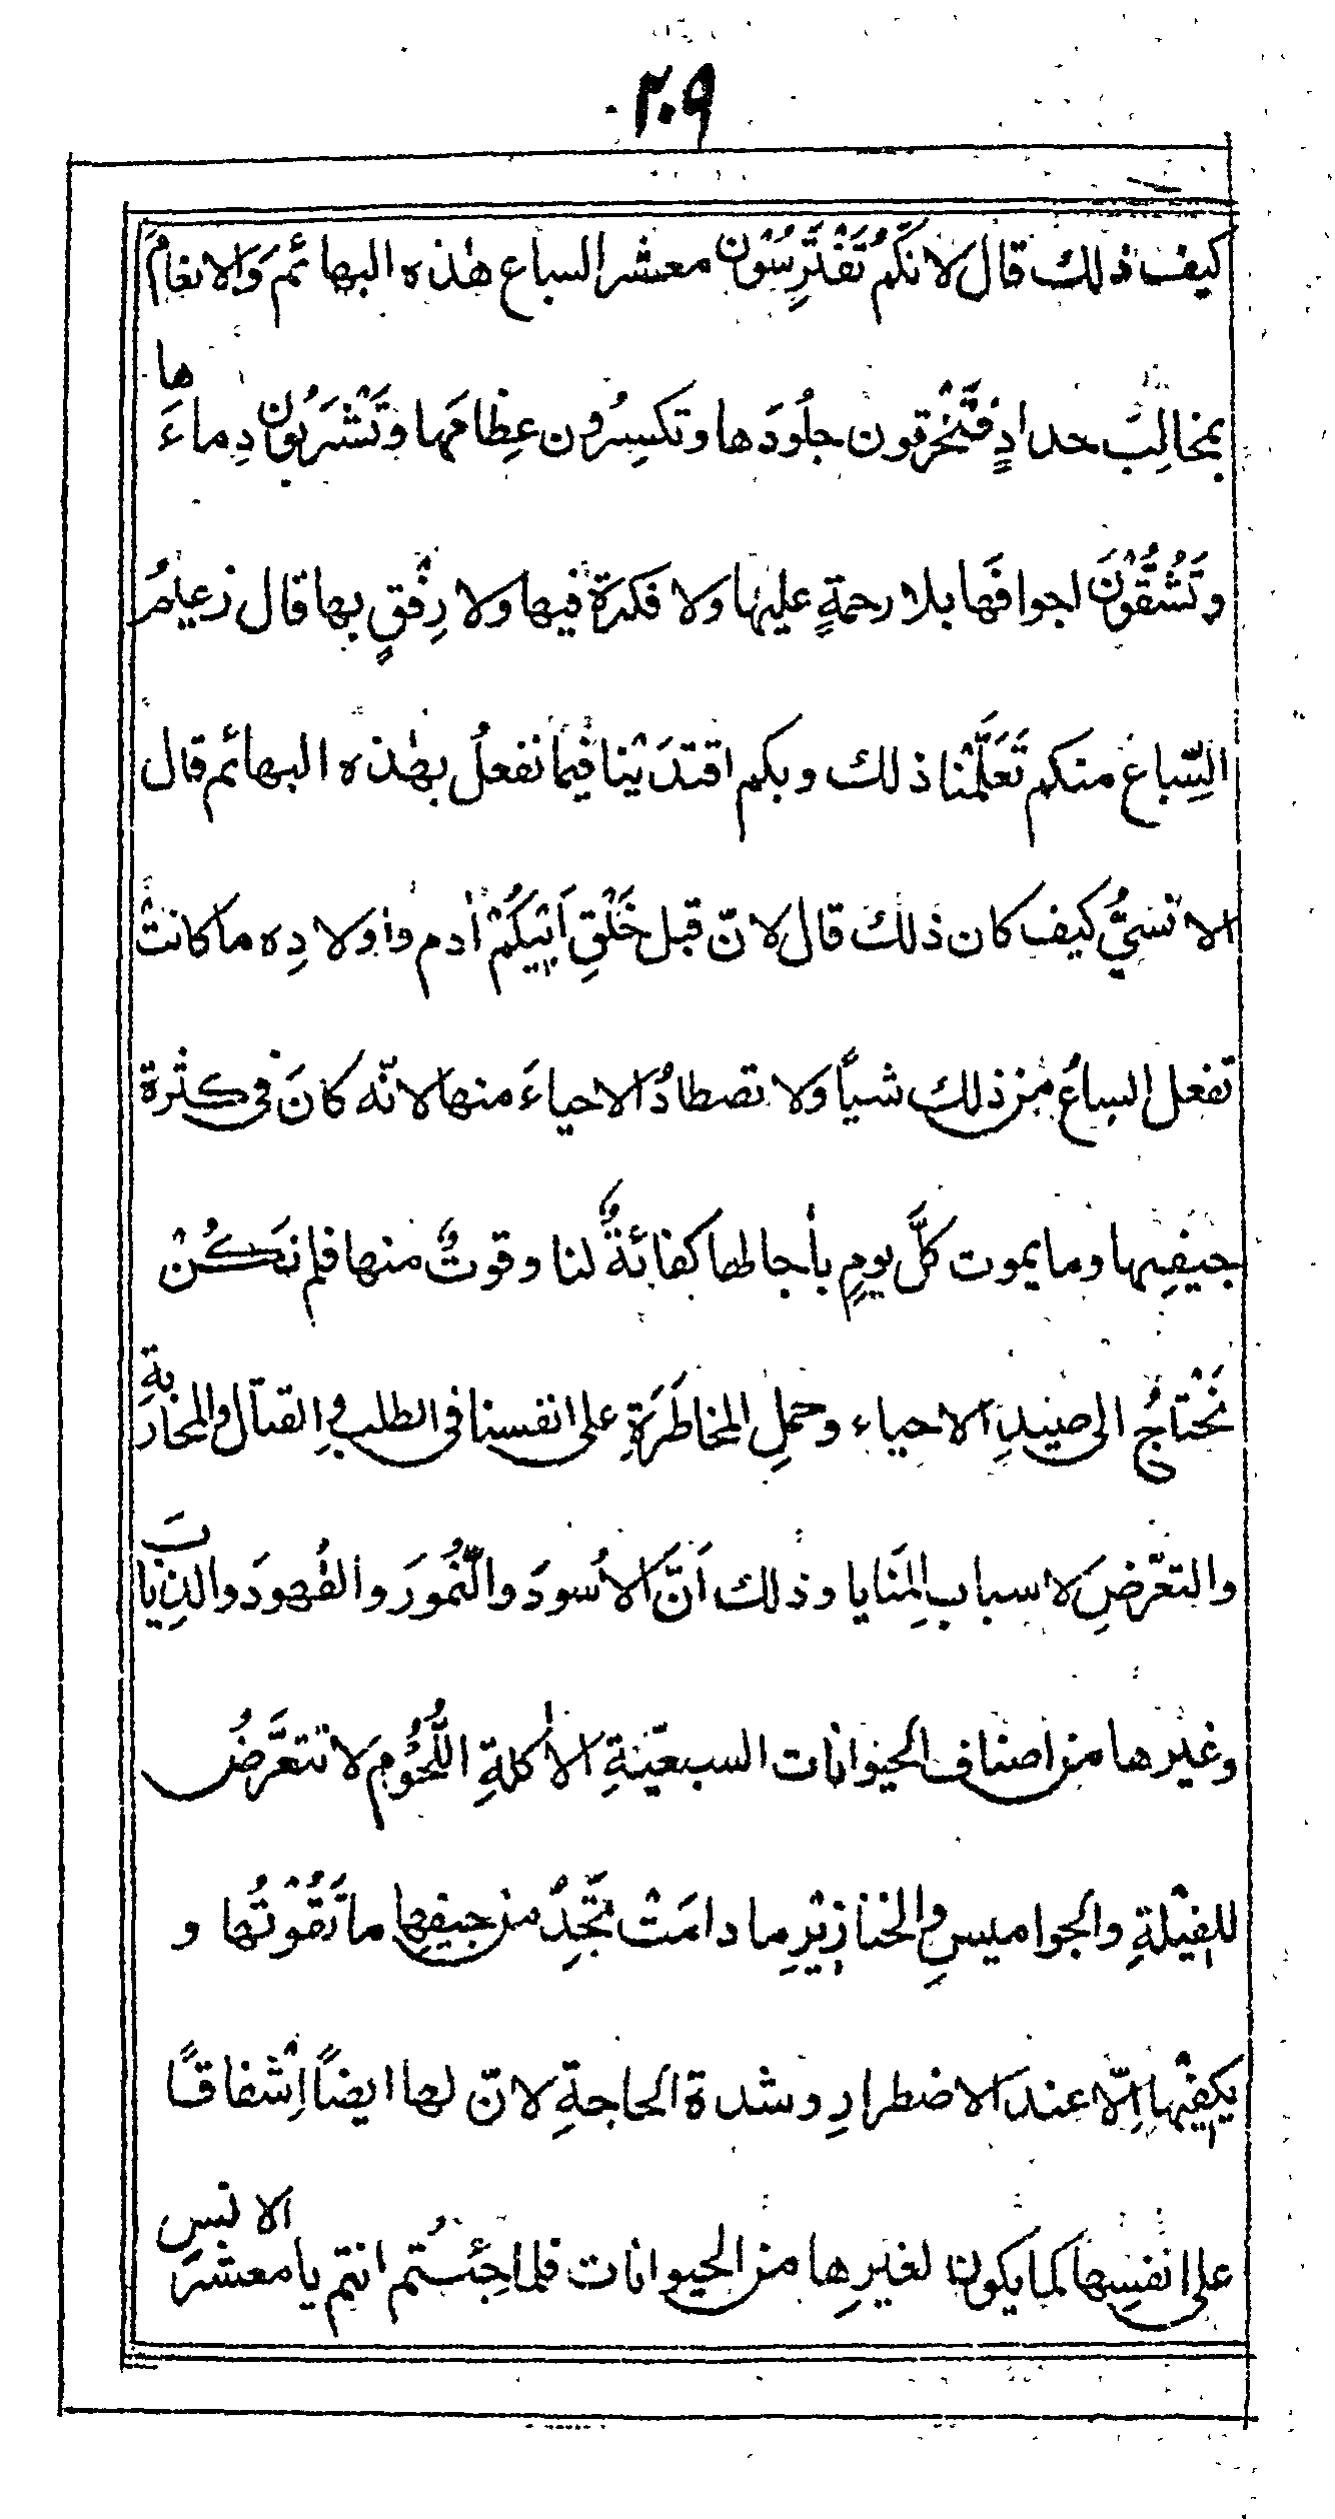 ٢٠٩
كيف ذلك قال لانكُم تَفْتَرِسُوْن معشر السباع هٰذه البهائمَ وَالانعامَ
بمخالِبَ حدادٍ فَتَخْرقون جلُودَها وتكسِرُون عِظامَها وتَشْرَبُون دِماءَها
وتَشُقُّوْنَ اجوافَها بلا رحمةٍ عليها ولا فكرة فيها ولا رِفْقٍ بها قال زعيمُ
السِّباعِ منكم تَعَلَّمْنا ذلك وبكم اقتدَيْنا فيما نفعلُ بهٰذه البهائم قال
الانسيُّ كيف كان ذلك قال لانّ قبل خَلْقِ اَبِيْكُمْ اٰدم واولادِه ما كانتْ
تفعل السباعُ من ذلك شيأً ولا تصطادُ الاحياءَ منها لانّه كانَ فى كثرة
جيفِها وما يموت كلَّ يومٍ باٰجالها كفائةٌ لنا وقوتٌ منها فلم نَكُنْ
نَحْتاجُ الى صيدِ الاحياء وحملِ المخاطَرَةِ على انفسنا فى الطلب والقتال والمحاربةِ
والتعرّضِ لاسباب المَنايا وذلك اَنَّ الاُسودَ والنُّمُورَ والفُهودَ والذِيابَ
وغيرها من اصناف الحيوانات السبعيّةِ الاٰكلةِ اللُّحُوْمِ لا تتعرَّضُ
للفِيْلةِ والجواميسِ والخنازِيْرِ ما دامَتْ تَجِدُ من جيفِها ما تَقُوْتُها و
يكفِيْها اِلّا عندَ الاضطرارِ وشدة الحاجةِ لانّ لها ايضاً اِشْفاقاً
على انفسِها كما يكون لغيرِها من الحيوانات فلما جِئتُم انتم يا معشرَ الانسِ